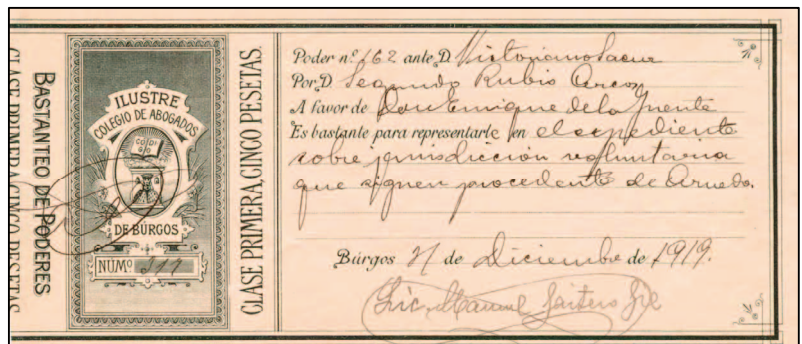 CLASE PRIMERA CINCO PESETAS
BASTANTEO DE PODERES
ILUSTRE
COLEGIO DE ABOGADOS
CODIGO
DE BÚRGOS
NÚMº 517
CLASE PRIMERA, CINCO PESETAS.
Poder n.º 162 ante D. Victoriano
Por D. Segundo Rubio Arcos
A favor de Don Enrique de la Fuente
Es bastante para representarle en el expediente
sobre jurisdicción voluntaria
que siguen procedente de Arnedo.
Búrgos de Diciembre de 1919.
Lic. Manuel Gil